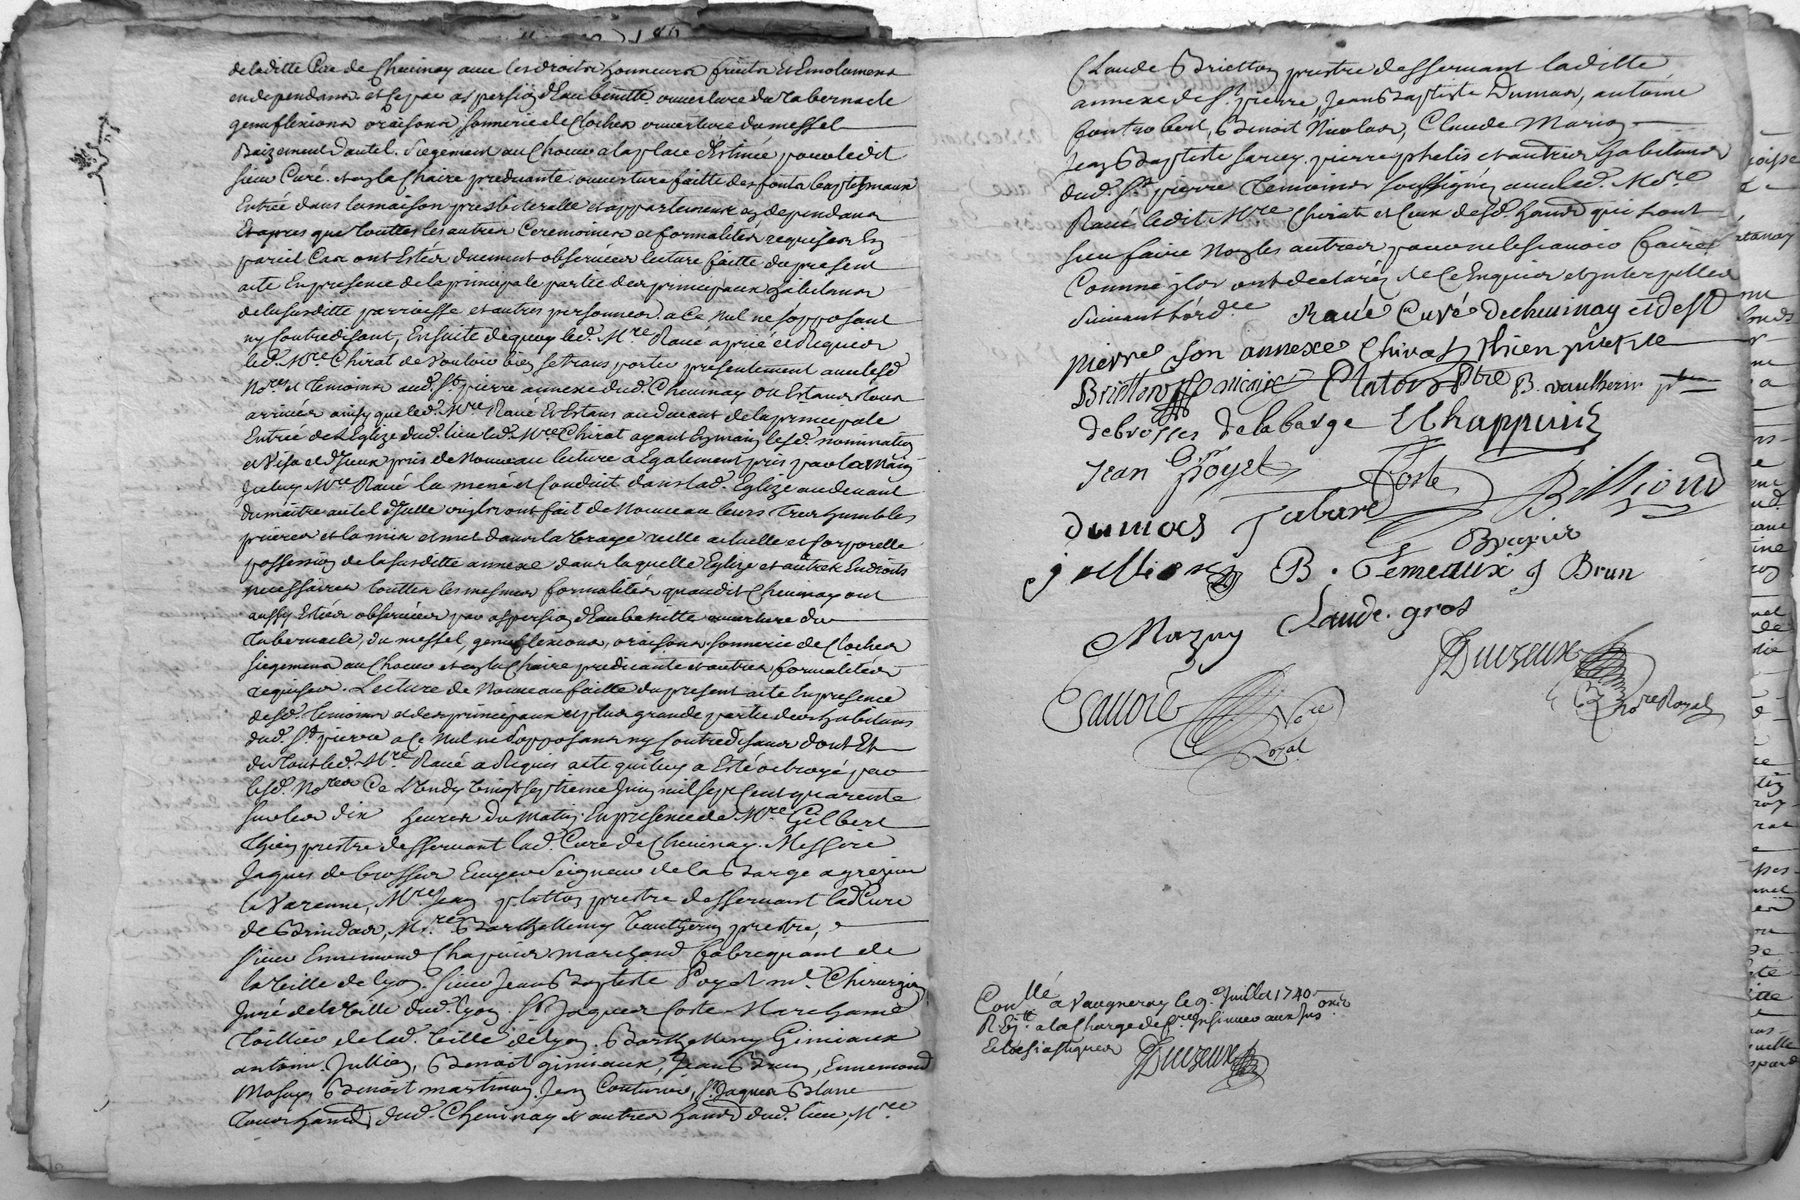 de laditte Cure de Chevinay avec les droits honneurs fruits et Emolumens
en dependans et ce par aspersion d'Eau benitte ouverture du tabernacle
genuflexions oraisons sonnerie de Cloches ouverture du messel
Baizement d'autel Siegement au Choeur a la place destinée pour ledit
sieur Curé et en la Chaire predicante ouverture faitte des fonts baptismaux
Entrée dans la maison presbiteralle et appartemens en dependans
Et apres que touttes les autres Ceremonies et formalités requises En
pareil Cas ont Esté duement observées lecture faitte du present
acte En presence de la principale partie des principaux habitans
de la susditte parroisse et autres personnes a Ce nul ne s'opposant
ny Contredisant, Ensuite de quoy led. Mre Ravé a prié et Requis
led. Mre Chirat de vouloir bien se transporter presentement avec lesd.
Nores et temoins aud. St pierre annexe dud. Chevinay ou Estans tous
arrivés ainsy que led. Mre Ravé Et Estans au devant de la principale
Entrée de l'Eglize dud. lieu led. Mre Chirat ayant En main lesd. nomination
et Visa et d'Iceux pris de Nouveau lecture a Egalement pris par la main
Iceluy Mre Ravé la mené et Conduit dans lad. Eglize au devant
du maitre autel d'Icelle ou ils ont fait de Nouveau leurs tres humbles
prieres et la mis et met dans la vraye reelle actuelle et Corporelle
possession de la susditte annexe dans laquelle Eglize et autres Endroits
necessaires touttes les mesmes formalités quaudit Chevinay ont
aussy Esté observées par aspersion d'Eau benitte ouverture du
tabernacle, du messel, genuflexions, oraisons, sonnerie de Cloches
siegemens au Choeur et en la Chaire predicante et autres formalités
requises. Lecture de Nouveau faitte du present acte En presence
desd. temoins et des principaux et plus grande partie des habitans
dud. St pierre a Ce nul ne s'opposans ny Contredisans dont Et
du tout led. Mre Ravé a Requis acte qui luy a Esté octroyé par
lesd. Nores Ce Lundy Vingt septieme Juin mil sept Cent quarente
sur les dix heures du Matin En presence de Mre Gilbert
Thien prestre desservant lad. Cure de Chevinay. Messire
Jaques de brosses Ecuyer Seigneur de la Barge
la Varenne, Mre Jean platton prestre desservant lad. Cure
de Brindas, Mre Barthellemy Vautherin prestre,
sieur Ennemond Chapuis marchand fabriquant de
la Ville de lyon. sieur Jean Baptiste Poyet me. Chirurgien
Juré de la Ville dud. lyon Sr Jaques Coste Marchand
de lad. Ville de lyon. Barthellemy Gimiaux
antoine Jullien, Benoit gimiaux, Jean Brun, Ennemond
Benoit martinon Jean Couturier, Sr Jaques Blanc
tous hants dud. Chevinay et autres hants dud. lieu, Mre
Claude Brietton prestre desservant laditte
annexe de St pierre, Jean Baptiste Dumas, antoine
font robert, Benoit Nicolas, Claude Marion
Jean Baptiste pierre phelis et autres habitans
dud. St pierre temoins soussignés avec led. Mre
Ravé ledit Mre Chirat et Ceux desd. hants qui sont
sceu faire Non les autres pour ne le sçavoir faire
Comme ils ont declarés de Ce Enquis et Interpellés
Suivant l'ord.ce Ravé Curé de chevinay et de St
pierre son annexe Chirat thien prestre
Brietton Platton ptre B. vautherin ptre
debrosses delabarge E Chappuis
Jean Poyet Coste Billiond
dumas Tabard
jullien B. Gemeaux J Brun
Mazuy Claude. gros
Duvzeux
Nore Royal
Savoie Nore
Royal
Conllé a Vaugneray le 9e. Juillet 1740
a la Charge de
Ecclesiastiques Duvzeux